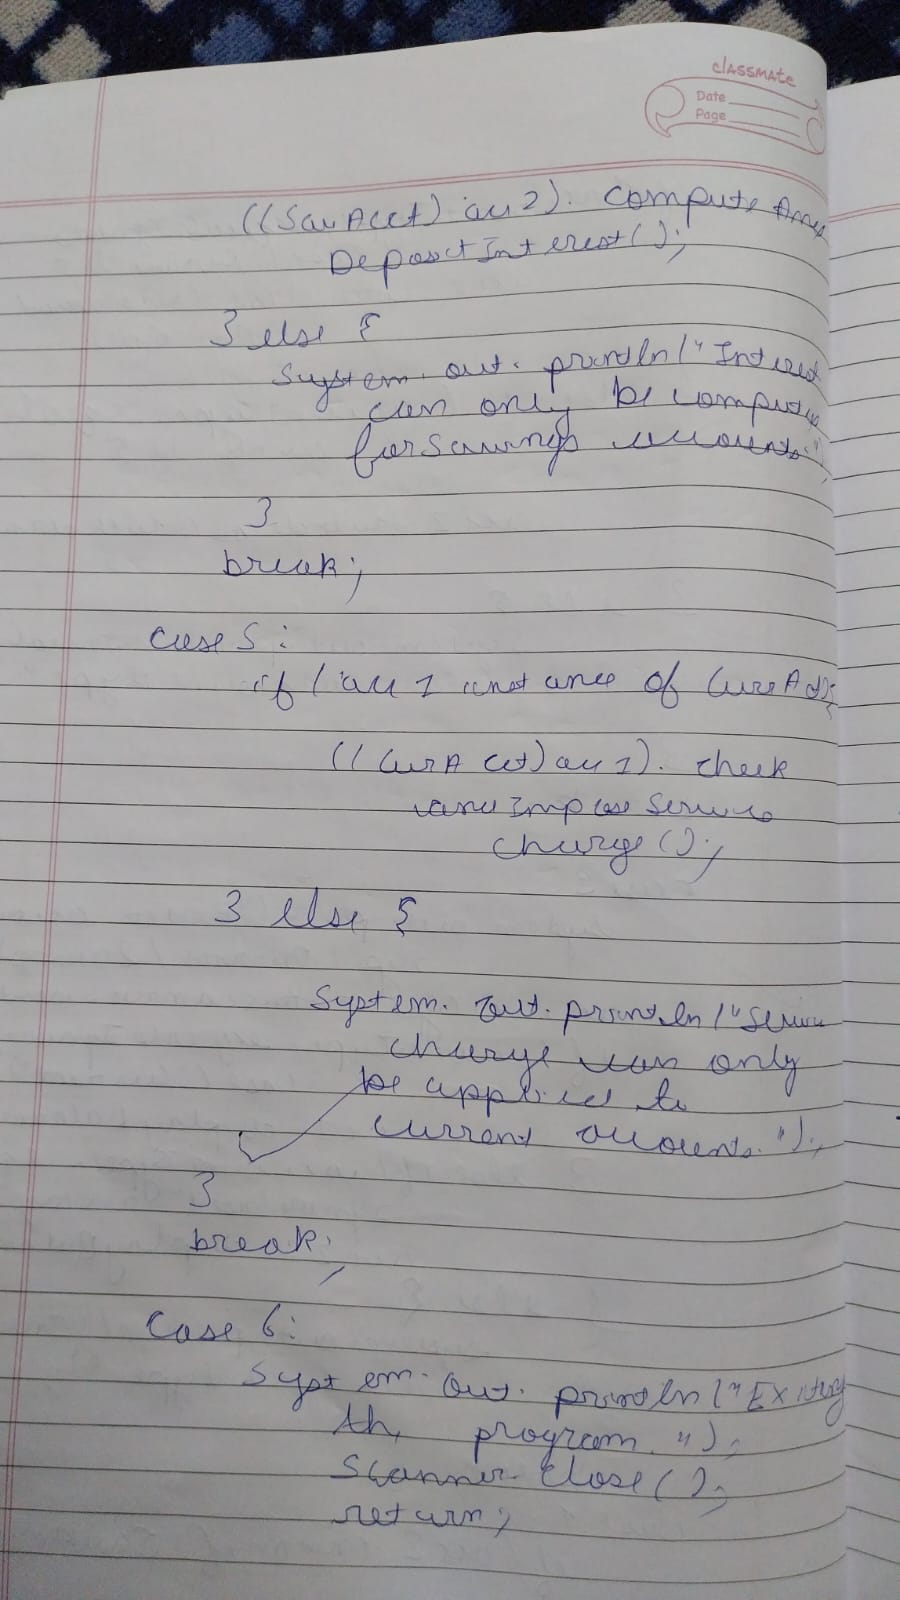 classmate
Date
Page
((SavAcct) acc2). compute And
Deposit Interest();
} else {
System. out. println("Interest
can only be computed
for savings accounts."
}
break;
case 5:
if (acc 1 instance of CurrAcct){
((CurrAcct) acc1). check
and Impose Service
charge();
} else {
System. out. println("Service
charge can only
be applied to
current accounts.");
}
break;
Case 6:
System. out. println("Exiting
the program.");
Scanner. close();
return;